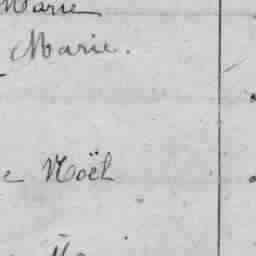 Marie
Marie.
e Noël